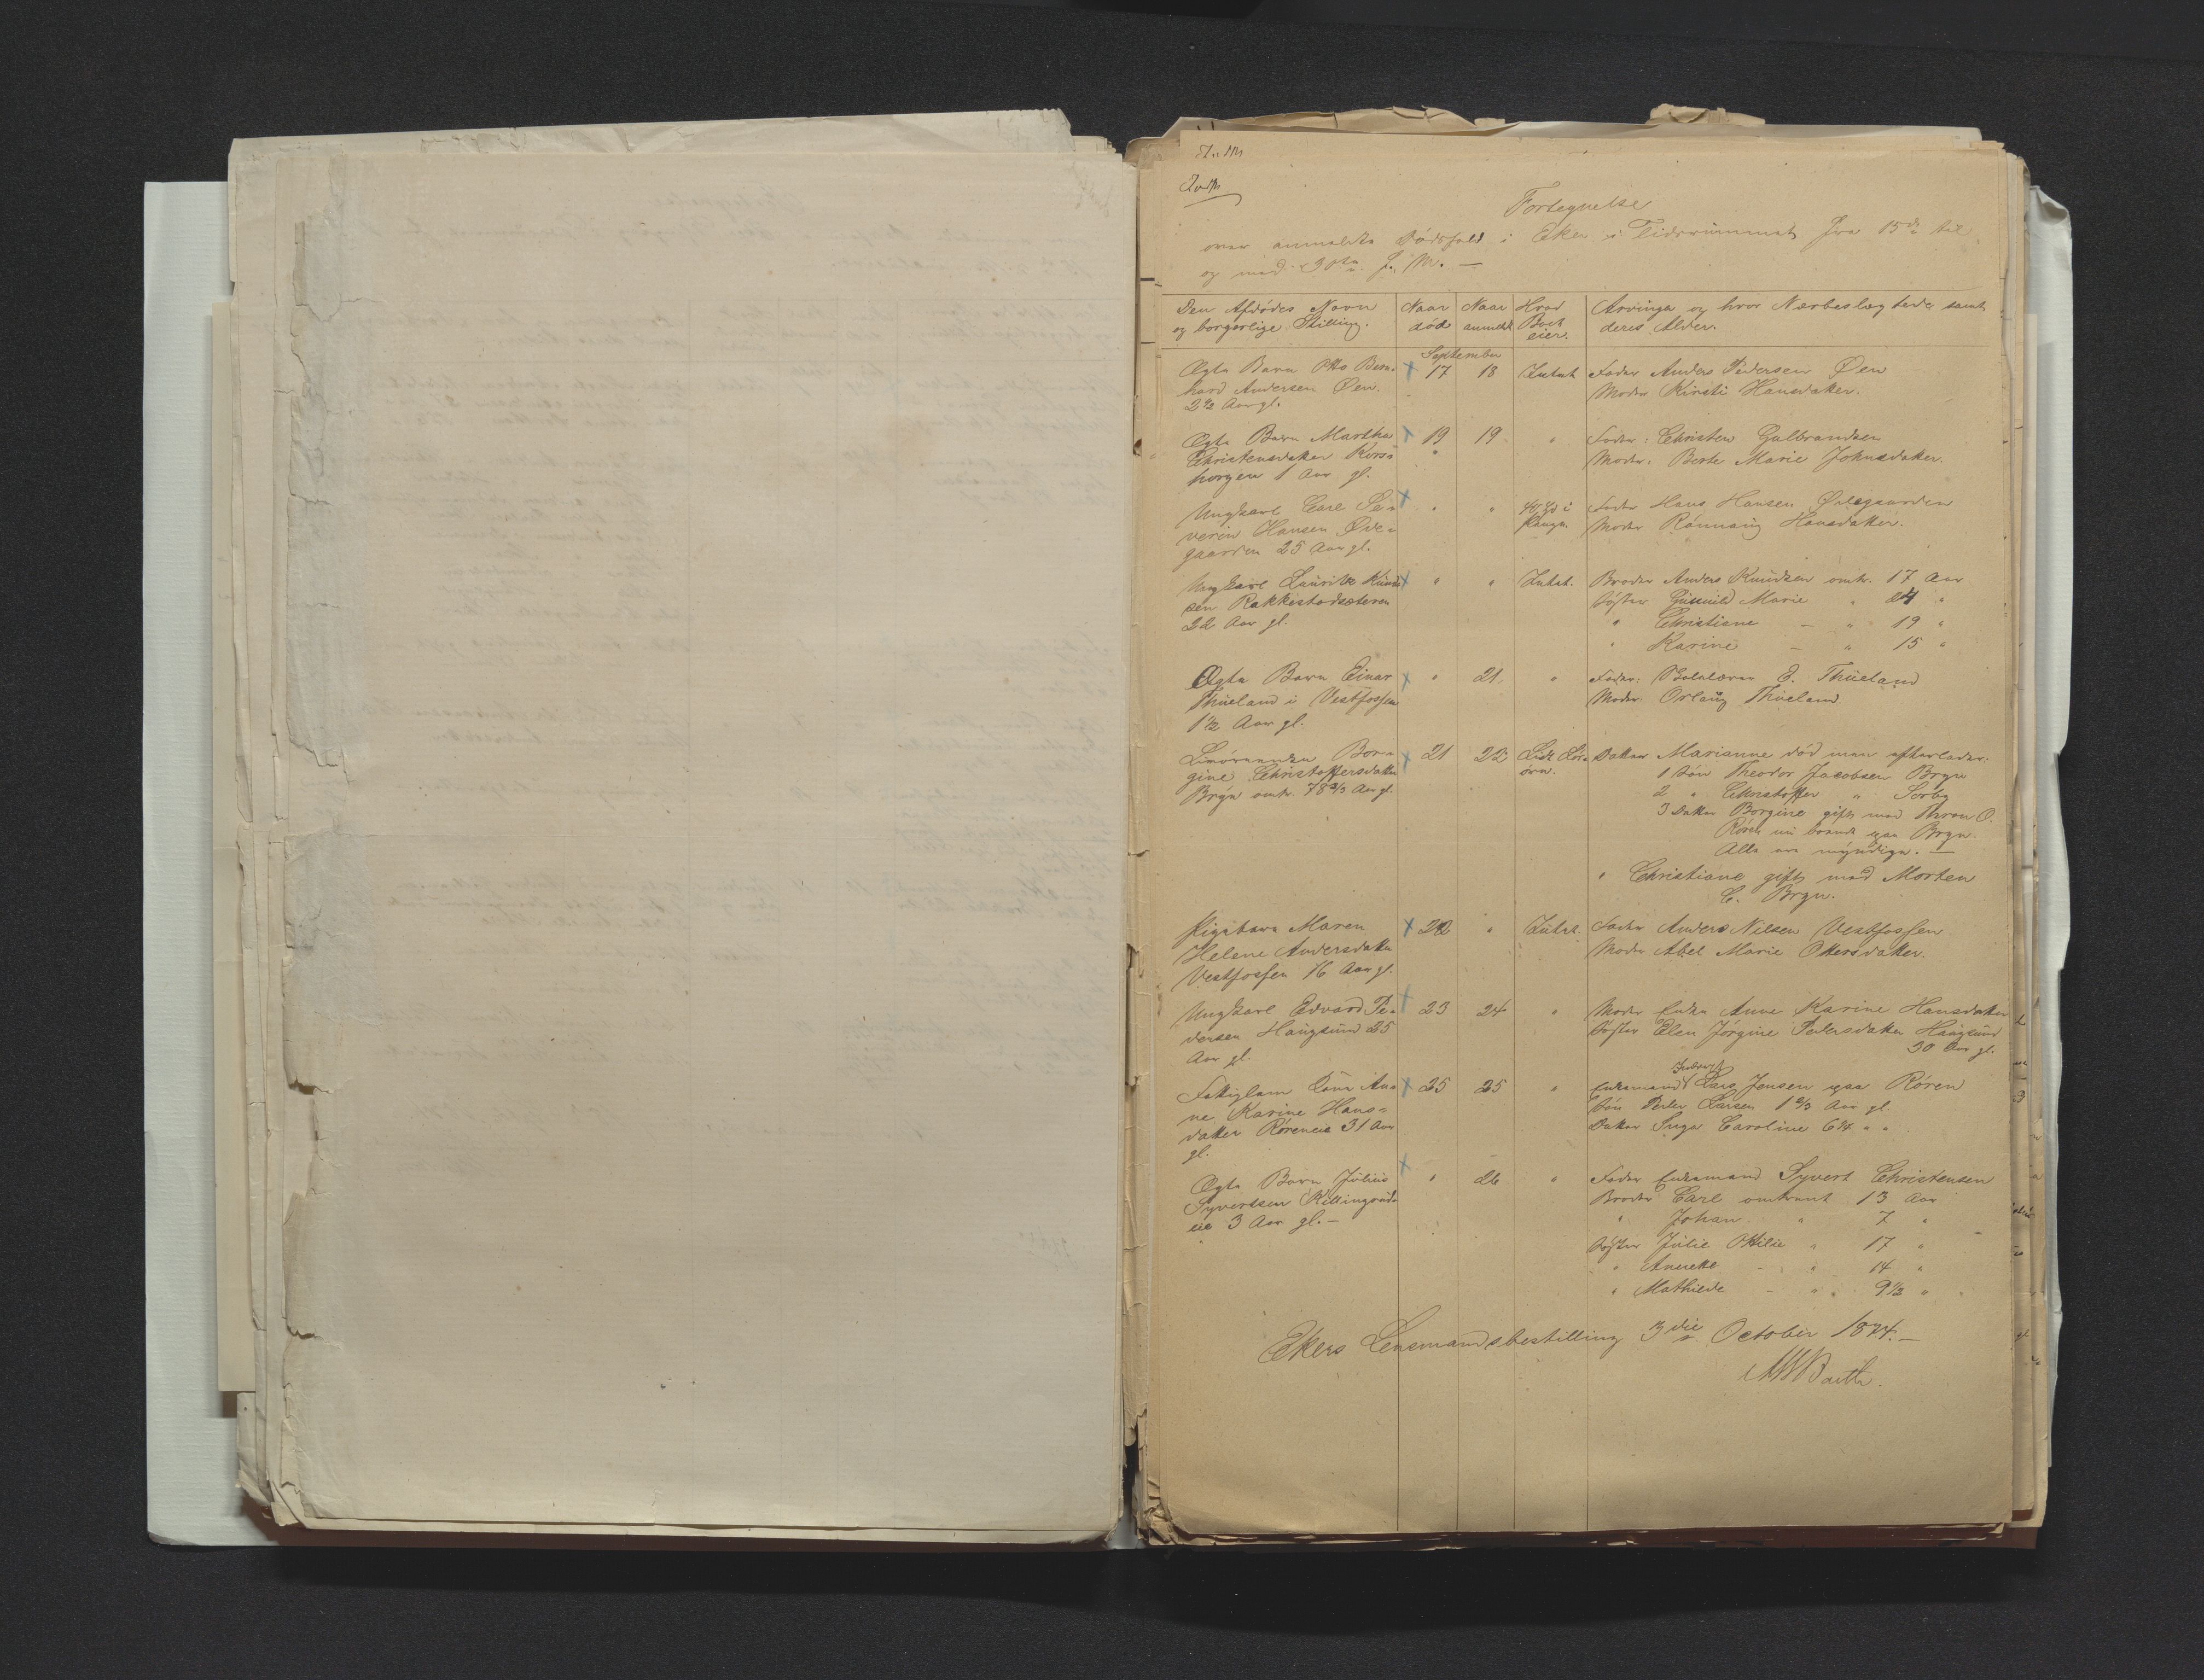 Fortegnelse
over anmeldte Dødsfald i Eker i Tidsrummet fra 15de til
og med 30te f. M. —
Den Afdødes Navn
og borgerlige Stilling.
Naar
død
Naar
anmeldt
Hvad
Boet
eier.
Arvinger og hvor Nærbeslægtede samt
deres Alder.
September
Ægte Barn Otto Bern-
hard Andersen Øen.
2½ Aar gl.
17 18 Intet Fader Anders Pedersen Øen
Moder Kirsti Hansdatter.
Ægte Barn Martha
Christensdatter Kors-
horgen 1 Aar gl.
19 19 " Fader: Christen Gulbrandsen
Moder: Berte Marie Johnsdatter.
Ungkarl Carl Se-
verin Hansen Øde-
gaarden 25 Aar gl.
" " i
Penge.
Fader Hans Hansen Ødegaarden
Moder Rønnaug Hansdatter.
Ungkarl Laurits Knud-
sen Rakkestadsæteren
22 Aar gl.
" " Intet. Broder Anders Knudsen omtr. 17 Aar
Søster Gunild Marie " 24 "
" Christiane — " 19 "
" Karine — " 15 "
Ægte Barn Einar
Thueland i Vestfossen
1½ Aar gl.
" 21 " Fader: E. Thueland
Moder: Orlaug Thueland.
Bor-
gine Christoffersdatter
Bryn omtr. 78 2/3 Aar gl.
21 22 Lidt Løs-
øre.
Datter Marianne død men efterlader:
1 Søn Theodor Jacobsen Bryn
2 " Christoffer " Sørby
3 Datter Borgine gift med Thron O.
Røren nu boende paa Bryn.
Alle ere myndige. —
" Christiane gift med Morten
C. Bryn.
Pigebarn Maren
Helene Andersdatter
Vestfossen 16 Aar gl.
22 " Intet. Fader Anders Nilsen Vestfossen
Moder Abel Marie Ottersdatter.
Ungkarl Edvard Pe-
dersen Haugsund 25
Aar gl.
23 24 " Moder Enke Anne Karine Hansdatter
Søster Elen Jørgine Pedersdatter Haugsund
30 Aar gl.
Fattiglem Kone An-
ne Karine Hans-
datter Røreneie 31 Aar
gl.
25 25 " Enkemand Lars Jensen paa Røren
Søn Peder Larsen 1 2/3 Aar gl.
Datter Inga Caroline 6¼ " "
Ægte Barn Julius
Syvertsen Killingruds-
eie 3 Aar gl. —
" 26 " Fader Enkemand Syvert Christensen
Broder Carl omtrent 13 Aar
" Johan " 7 "
Søster Julie Ottilie " 17 "
" Annette — " 14 "
" Mathilde — " 9½ "
Ekers Lensmandsbestilling 3die October 1874. —